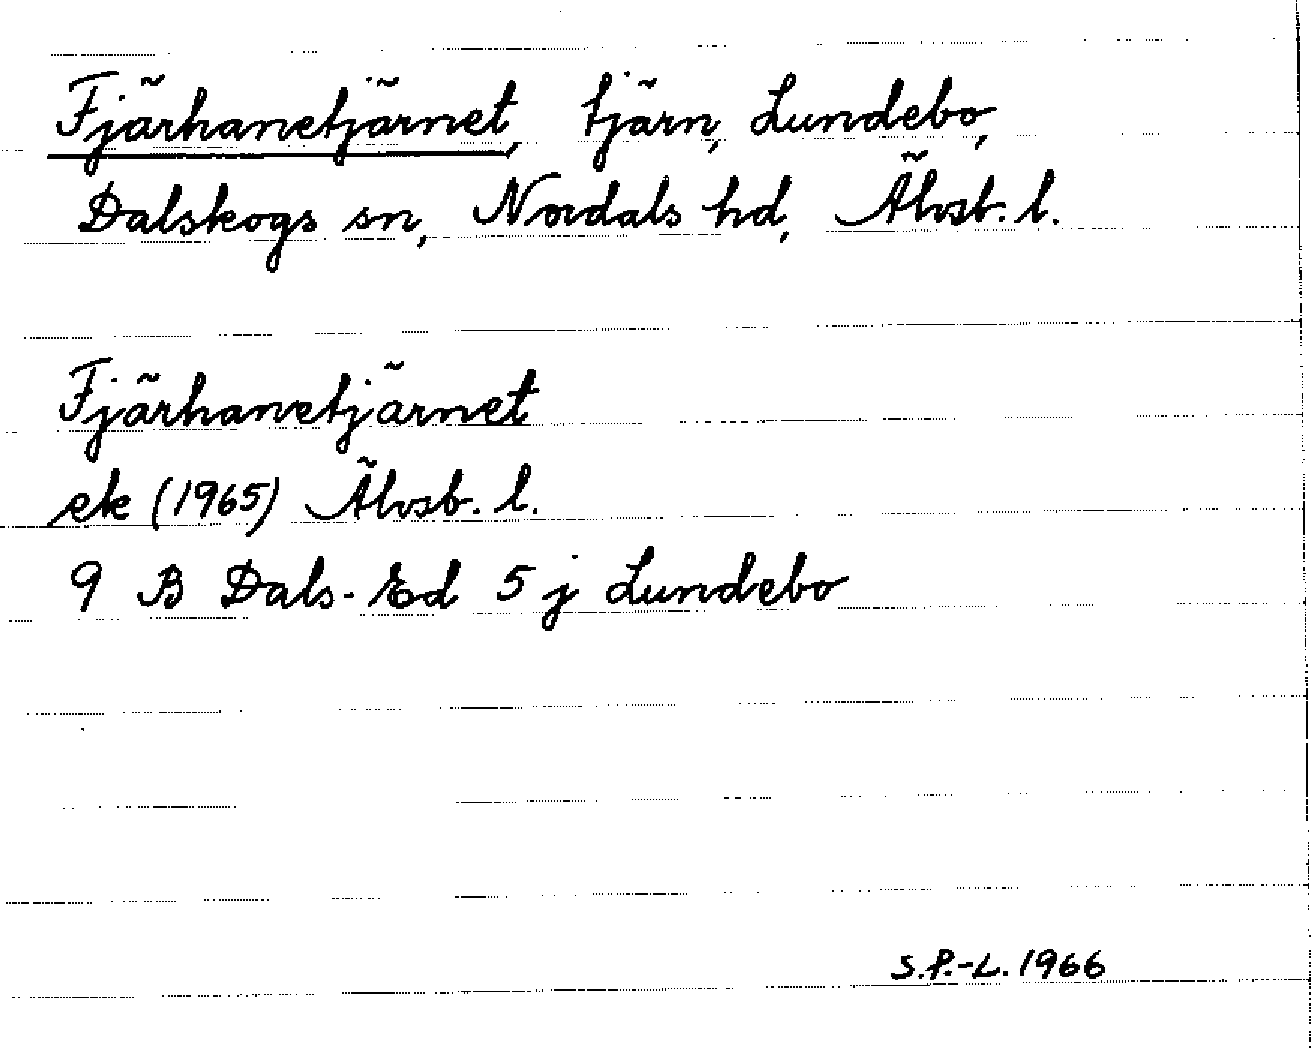 Fjärhanetjärnet, tjärn, Lundebo,
Dalskogs sn, Nordals hd, Älvsb. l.
Fjärhanetjärnet
ek (1965) Älvsb. l.
9 B Dals-Ed 5 j Lundebo
S.P.-L. 1966